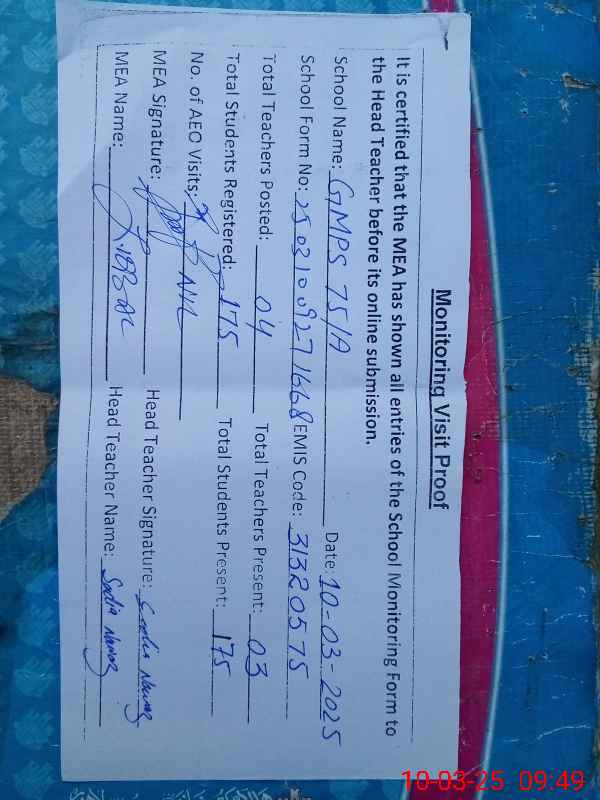 Monitoring Visit Proof
It is certified that the MEA has shown all entries of the School Monitoring Form to
the Head Teacher before its online submission.
School Name: GMPS 75/A Date: 10-03-2025
School Form No: 25031009271668 EMIS Code: 31320575
Total Teachers Posted: 04 Total Teachers Present: 03
Total Students Registered: 175 Total Students Present: 175
No. of AEO Visits:
MEA Signature: Head Teacher Signature: Sadia Nawaz
MEA Name: Head Teacher Name: Sadia Nawaz
10-03-25 09:49